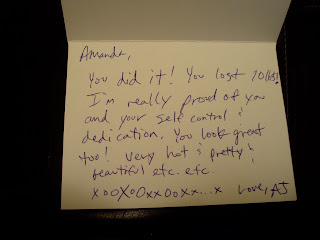 Amanda,
You did it! You lost 70lbs!
I'm really proud of you
and your self control &
dedication. You look great
too! Very hot & pretty &
beautiful etc. etc.
xooXoOxxOoxx...x Love, AJ